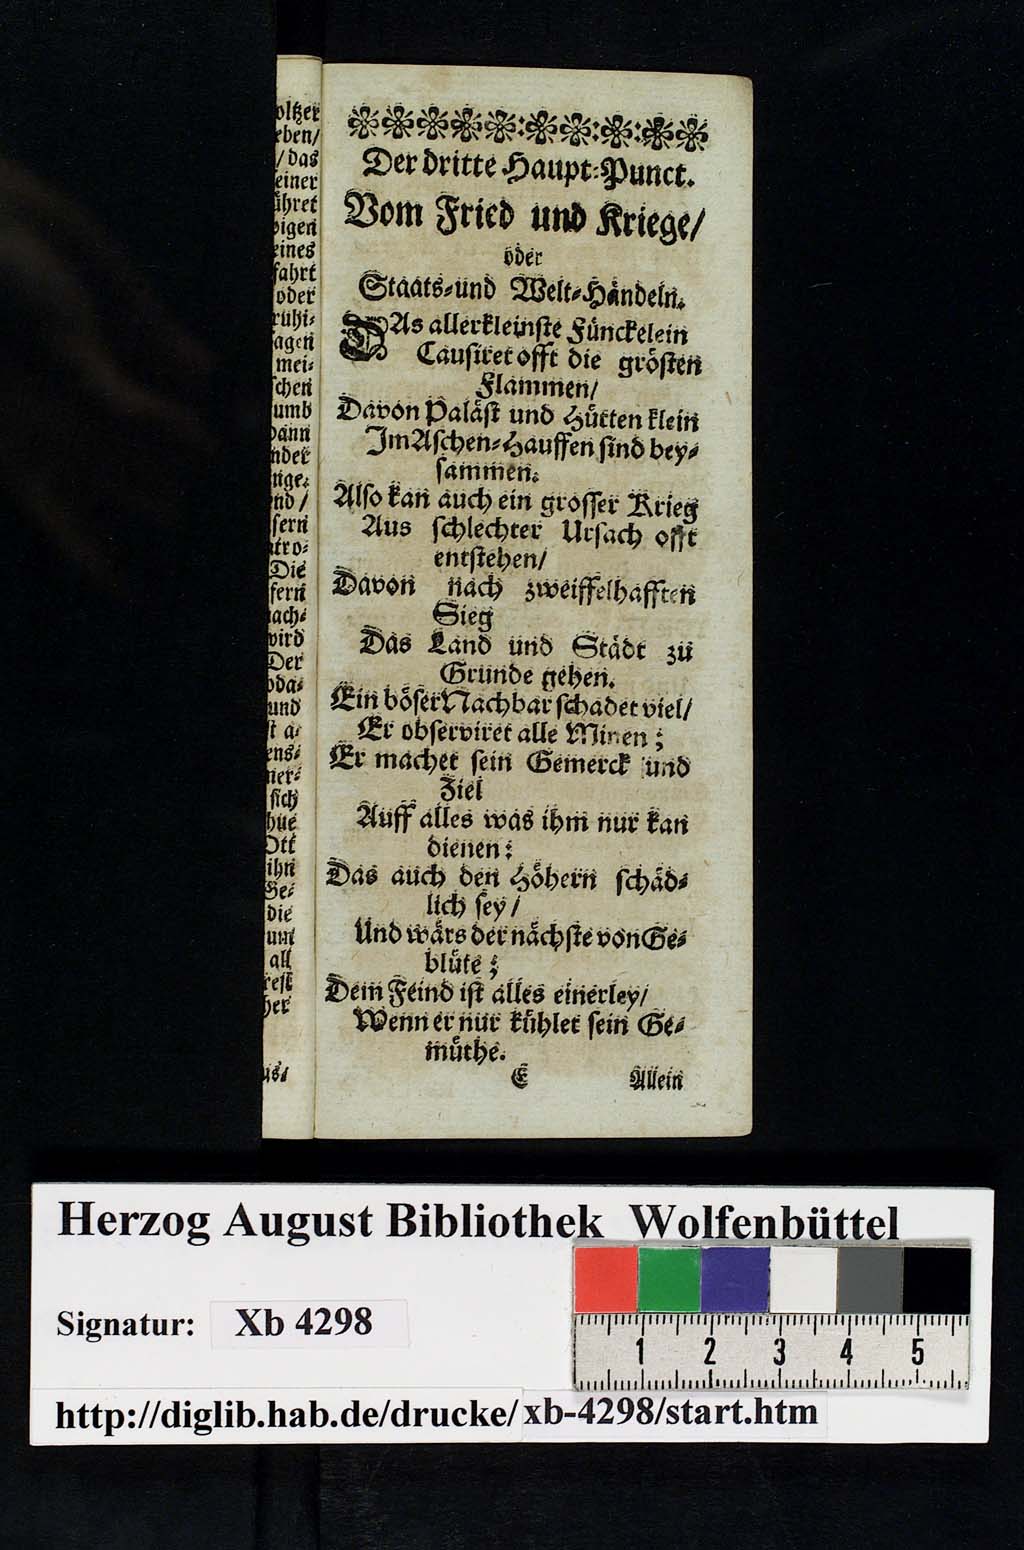 Der dritte Haupt-Punct.
Vom Fried und Kriege/
oder
Staats-und Welt-Händeln.
DAs allerkleinste Fünckelein
Causiret offt die grösten
Flammen/
Davon Paläst und Hütten klein
Im Aschen-Hauffen sind bey-
sammen.
Also kan auch ein grosser Krieg
Aus schlechter Ursach offt
entstehen/
Davon nach zweiffelhafften
Sieg
Das Land und Städt zu
Grunde gehen.
Ein böser Nachbar schadet viel/
Er observiret alle Minen;
Er machet sein Gemerck und
Ziel
Auff alles was ihm nur kan
dienen:
Das auch den Höhern schäd-
lich sey/
Und wärs der nächste von Ge-
blüte;
Dem Feind ist alles einerley/
Wenn er nur kühlet sein Ge-
müthe.
E Allein
Herzog August Bibliothek Wolfenbüttel
Signatur: Xb 4298
1 2 3 4 5
http://diglib.hab.de/drucke/xb-4298/start.htm